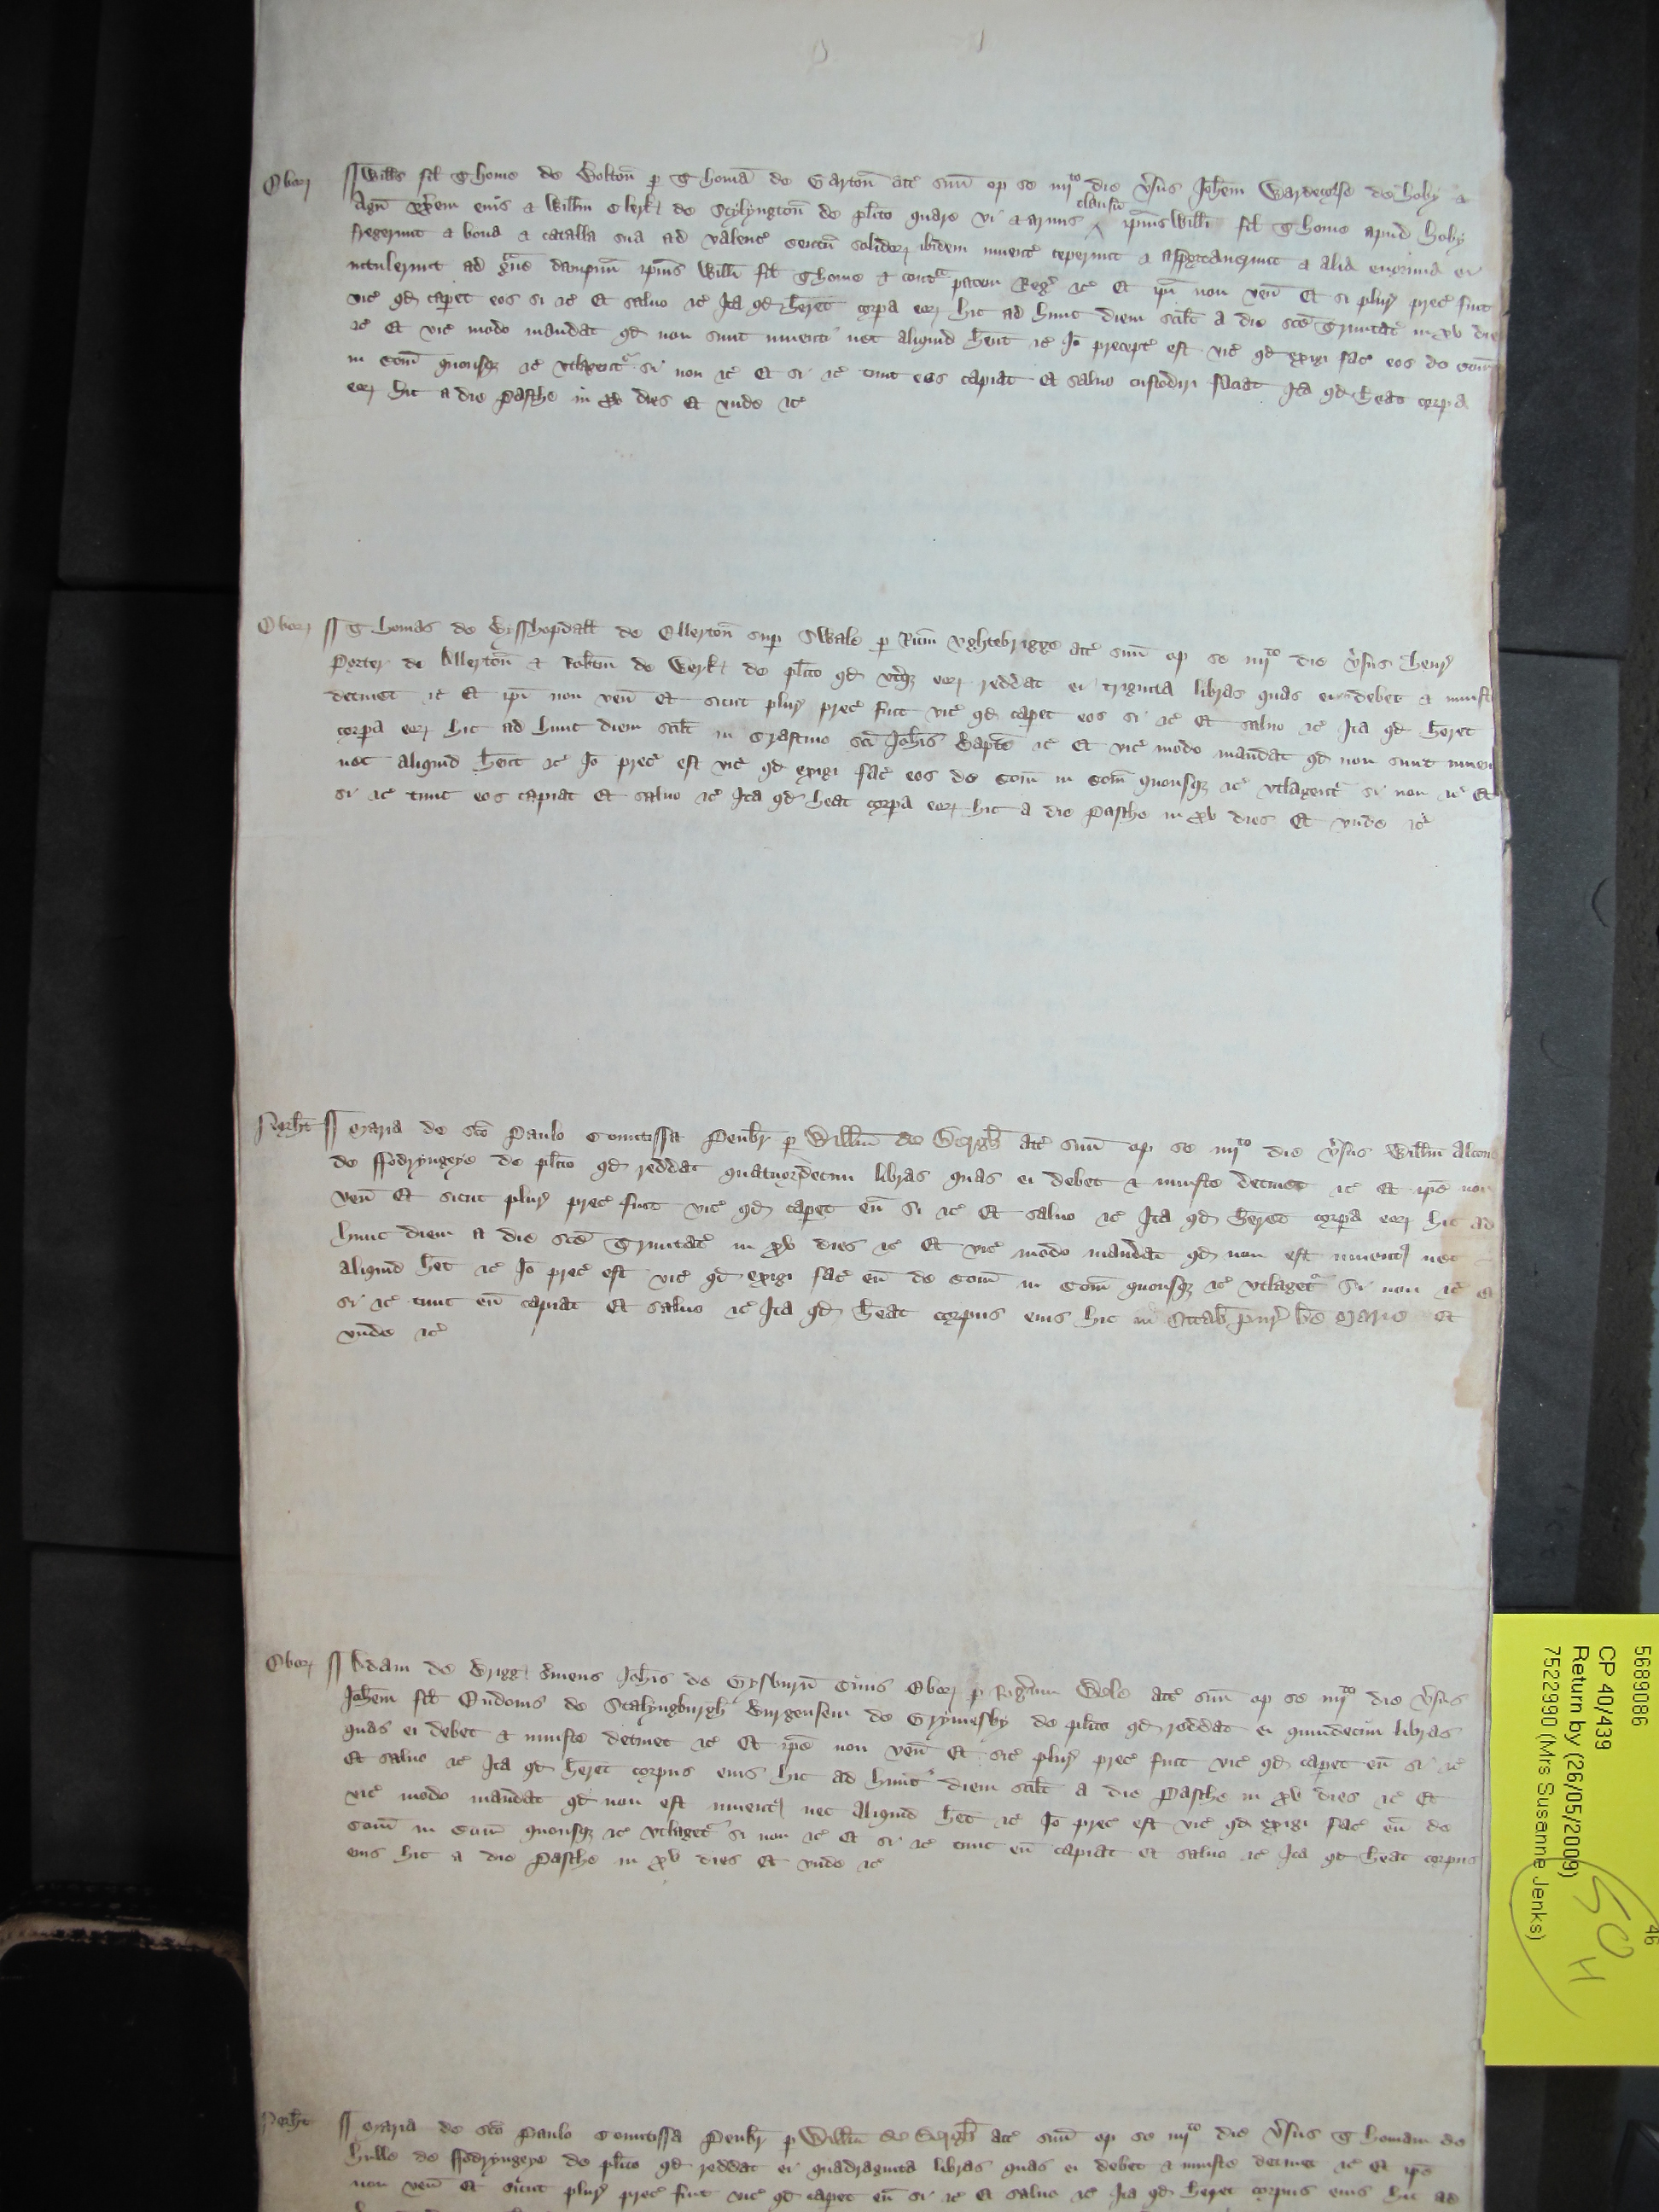 Ebor
Will's fil Thome de Bolton p Thomã de Garton att' suũ op se iiij^to die v'sus Joh'em Wardecopse de Hoby &
Agn' vx'em eius & Will'm Clerk de Stylyngton de pl'ito quare vi & armis clausũ ip'ius Will'i fil Thome apud Hoby
fregerunt & bona & catalla sua ad valenc' Centũ solidor' ibidem inuent' ceperunt & asportauerunt & alia enormia ei
intulerunt ad g^aue dampnũ ip'ius Will'i fil Thome & cont^a pacem Reg' &c' Et ip'i non veñ Et si plur' prec' fuit
vic' qd caperet eos si &c' Et saluo &c' Ita qd h'eret corpa eor' hic ad hunc diem scil't a die sce Trinitat' in xv dies
&c' Et vic' modo mandat qd non sunt inuenti nec aliquid h'ent &c' Jo precept' est vic' qd exigi fac' eos de Com'
in Com' quousq' &c' vtlagent' si non &c' Et si &c' tunc eos capiat Et saluo custodiri faciat Ita qd h'eat corpa
eor' hic a die Pasche in xv dies Et vnde &c'
Ebor
Thomas de Bysshopdall de Ellerton sup Swale p Ric'm Vghtebrigge att' suũ op se iiij^to die v'sus Henr'
Porter de Allerton & Rob'tm de Berk de pl'ito qd vt'q' eor' reddat ei triginta libras quas ei debet & iniuste
detinet &c' Et ip'i non veñ Et sicut plur' prec' fuit vic' qd caperet eos si &c' Et saluo &c' Ita qd h'eret
corpa eor' hic ad hunc diem scil't in Crastino sci Joh'is Bapt'e &c' Et vic' modo mandat qd non sunt inuen
nec aliquid h'ent &c' Jo prec' est vic' qd exigi fac' eos de Com' in Com' quousq' &c' vtlagent' si non &c' Et
si &c' tunc eos capiat Et saluo &c' Ita qd h'eat corpa eor' hic a die Pasche in xv dies Et vnde &c'
North't
Maria de s'co Paulo Comitissa Penbr' p Will'm de Bergh att' suũ op se iiij^to die v'sus Will'm Alcon
de ffodryngeye de pl'ito qd reddat quatuordecim libras quas ei debet & iniuste detinet &c' Et ip'e non
veñ Et sicut plur' prec' fuit vic' qd caperet eũ si &c' Et saluo &c' Ita qd h'eret corpa eor' hic ad
hunc diem a die sce Trinitat' in xv dies &c' Et vic' modo mandat qd non est inuent' nec
aliquid h'et &c' Jo prec' est vic' qd exigi fac' eũ de Com' in Com' quousq' &c' vtlaget' Si non &c' Et
si &c' tunc eũ capiat Et saluo &c' Ita qd h'eat corpus eius hic in Octab' pur' b'e Marie Et
vnde &c'
Ebor
Adam de Brigg' s'uiens Joh'is de Gysburn' Ciuis Ebor' p Rog'um Wele att' suũ op se iiij^to die v'sus
Joh'em fil' Eudonis de Stalyngburgh' Burgensem de Grymesby de pl'ito qd reddat ei quindecim libras
quas ei debet & iniuste detinet &c' Et ip'e non veñ Et sic' plur' prec' fuit vic' qd caperet eũ si &c'
Et saluo &c' Ita qd h'eret corpus eius hic ad hunc diem scil't a die Pasche in xv dies &c' Et
vic' modo mandat qd non est inuent' nec aliquid h'et &c' Jo prec' est vic' qd exigi fac' eũ de
Com' in Com' quousq' &c' vtlaget' si non &c' Et si &c' tunc eũ capiat Et saluo &c' Ita qd h'eat corpus
eius hic a die Pasche in xv dies Et vnde &c'
North't
Maria de s'co Paulo Comitissa Penbr' p Will'm de Bergh att' suũ op se iiij^to die v'sus Thomam de
Hulle de ffodryngeye de pl'ito qd reddat ei quadraginta libras quas ei debet & iniuste detinet &c' Et ip'e
non veñ Et sicut plur' prec' fuit vic' qd caperet eũ si &c' Et saluo &c' Ita qd h'eret corpus eius hic ad
46
5689086
CP 40/439
Return by (26/05/2009)
7522990 (Mrs Susanne Jenks)